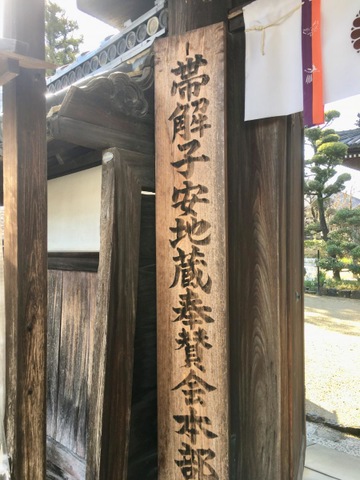 帯解子安地蔵奉賛会本部